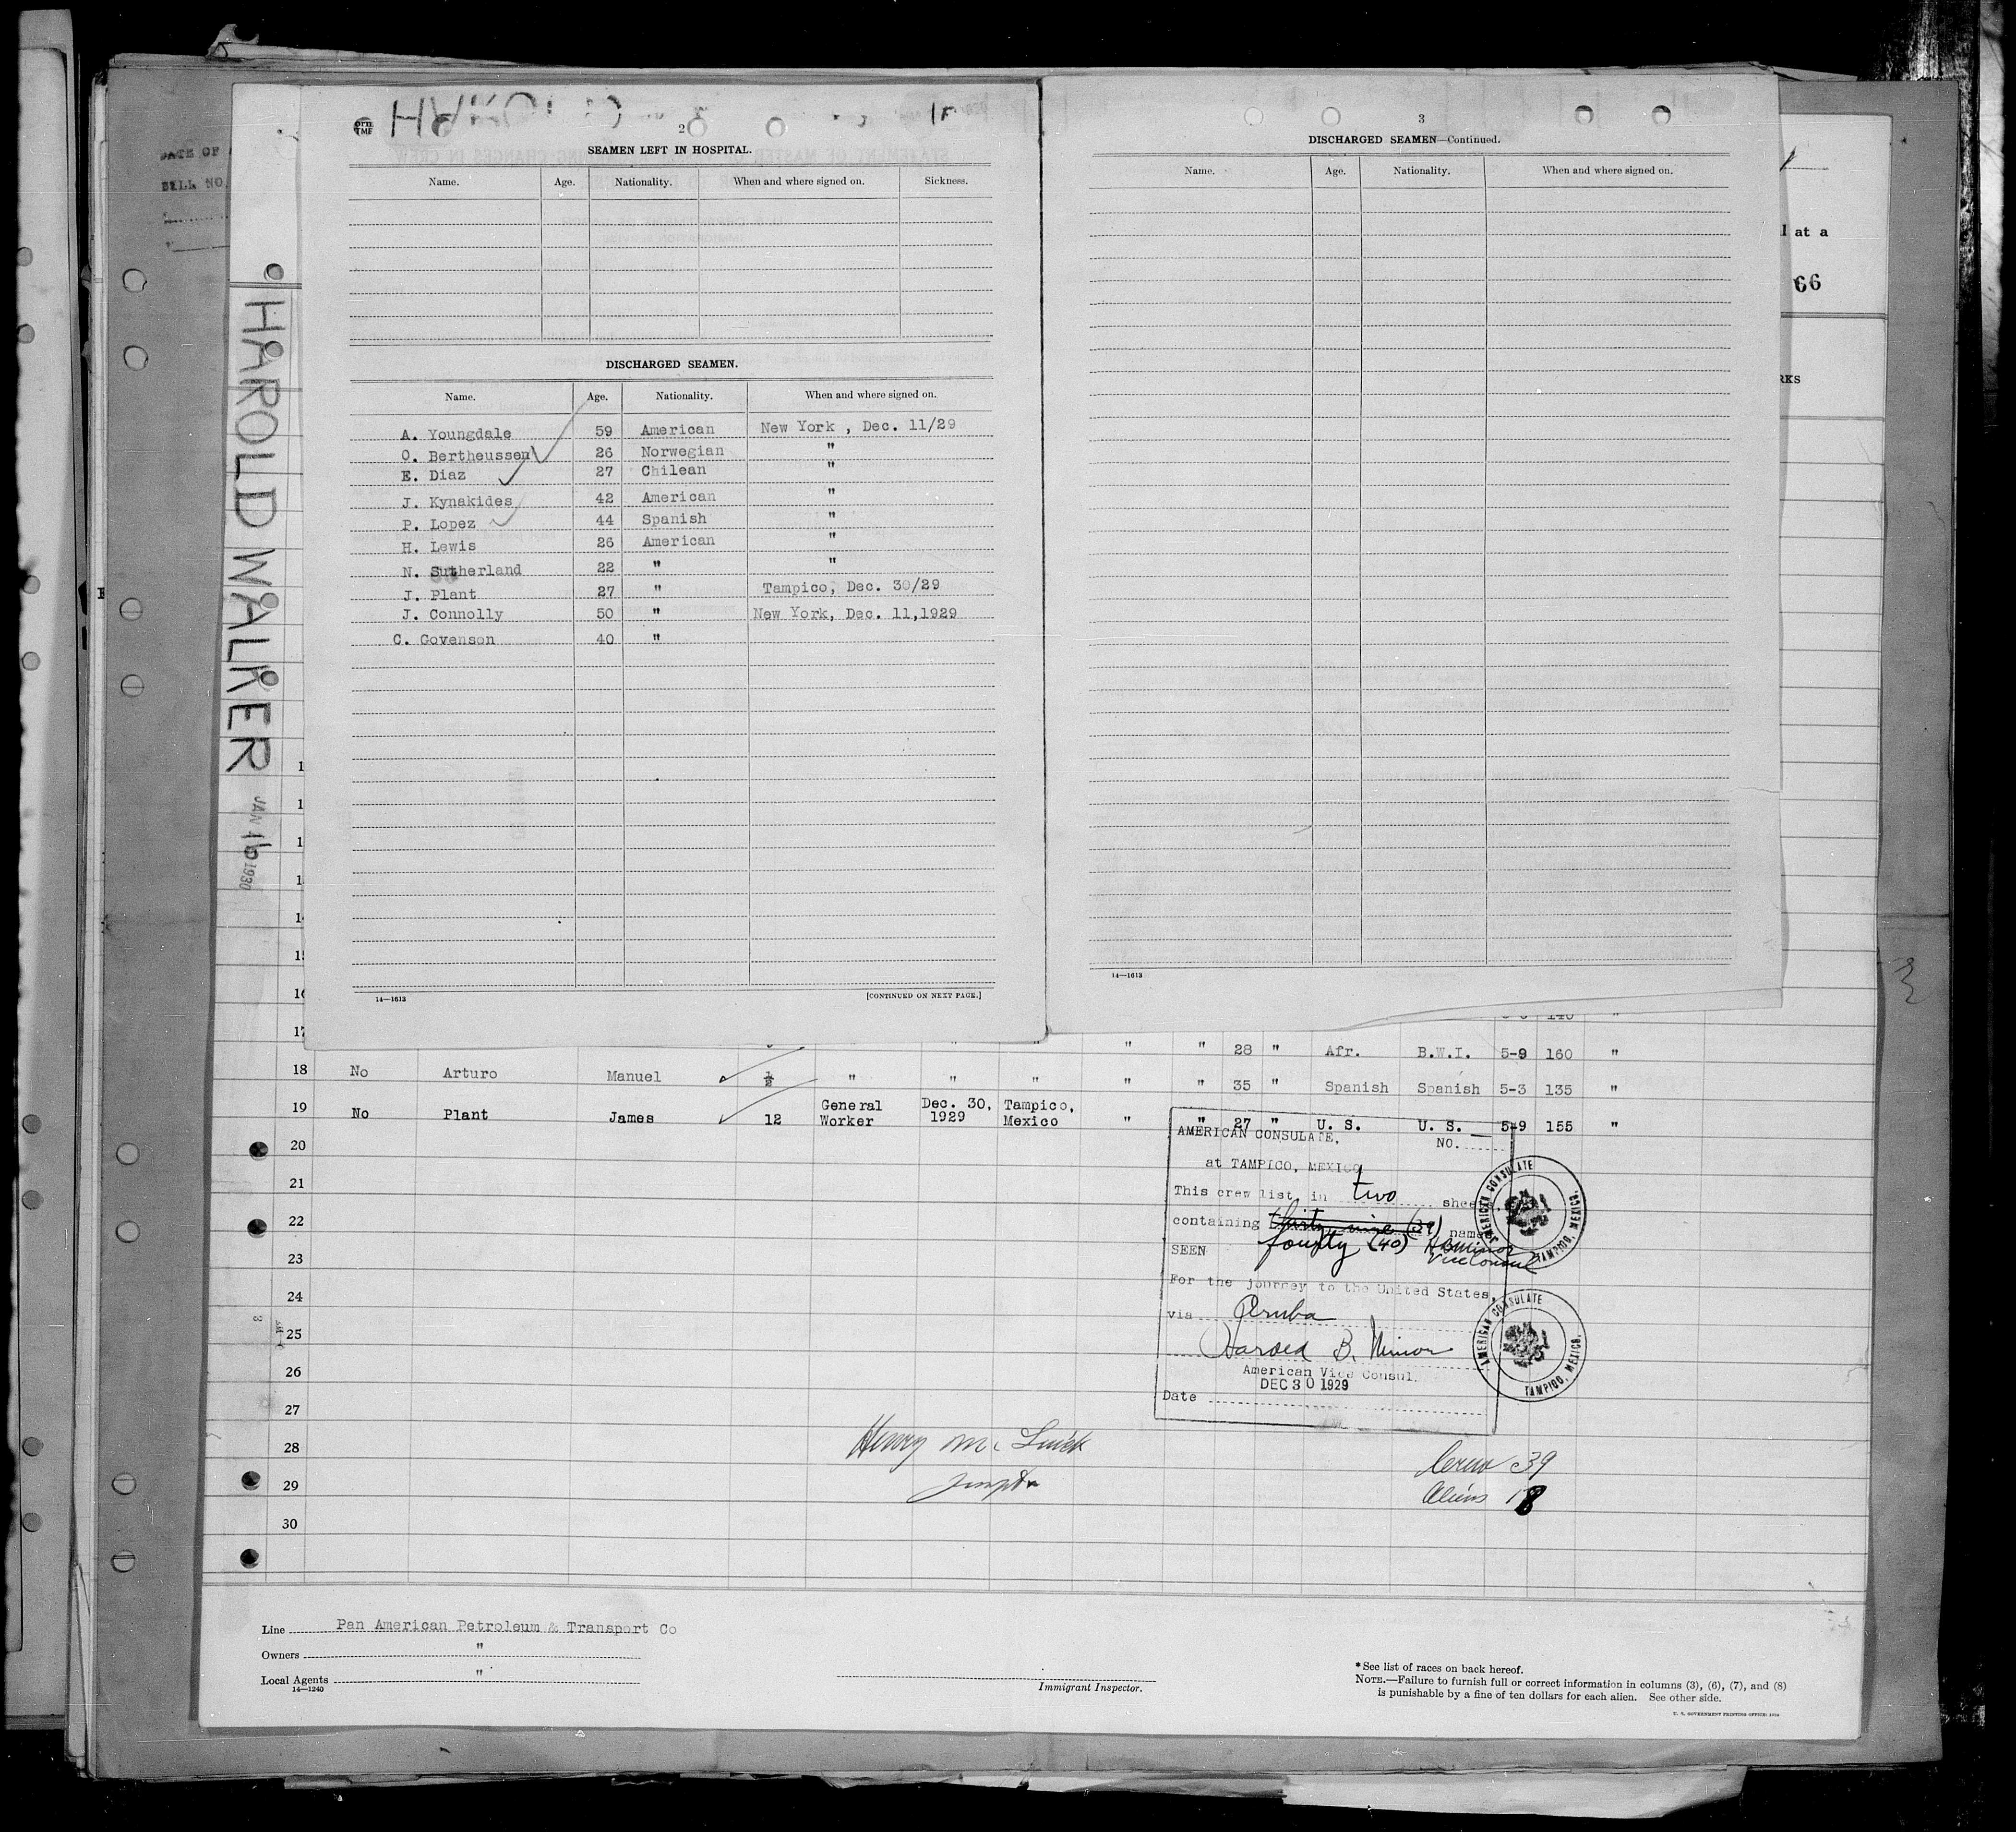 DATE OF
BILL NO.
2
SEAMEN LEFT IN HOSPITAL.
Name. Age. Nationality. When and where signed on. Sickness.
DISCHARGED SEAMEN.
Name. Age. Nationality. When and where signed on.
A. Youngdale 59 American New York , Dec. 11/29
O. Bertheussen 26 Norwegian "
E. Diaz 27 Chilean "
J. Kynakides 42 American "
P. Lopez 44 Spanish "
H. Lewis 26 American "
N. Sutherland 22 " "
J. Plant 27 " Tampico, Dec. 30/29
J. Connolly 50 " New York, Dec. 11,1929
C. Govenson 40 "
14—1613 [CONTINUED ON NEXT PAGE.]
3
DISCHARGED SEAMEN—Continued.
Name. Age. Nationality. When and where signed on.
14—1613
l at a
66
RKS
HAROLD WALKER
JAN 16 1930
15
16
17 " " 28 " Afr. B.W.I. 5-9 160 "
18 No Arturo Manuel ½ " " " " " 35 " Spanish Spanish 5-3 135 "
19 No Plant James 12 General Worker Dec. 30, 1929 Tampico, Mexico " " 27 " U. S. U. S. 5-9 155 "
20
21
22
23
24
25
26
27
28
29
30
AMERICAN CONSULATE,
NO.
at TAMPICO, MEXICO
This crew list, in two shee
containing thirty nine (39) names
SEEN fourty (40) HBMinor
Vice Consul
For the journey to the United States,
via Aruba
Harold B. Minor
American Vice Consul.
DEC 30 1929
Date
AMERICAN CONSULATE
TAMPICO, MEXICO.
AMERICAN CONSULATE
TAMPICO, MEXICO.
Crew 39
Aliens 18
Line Pan American Petroleum & Transport Co
Owners "
Local Agents "
14—1240
Immigrant Inspector.
* See list of races on back hereof.
NOTE.—Failure to furnish full or correct information in columns (3), (6), (7), and (8)
is punishable by a fine of ten dollars for each alien. See other side.
U. S. GOVERNMENT PRINTING OFFICE: